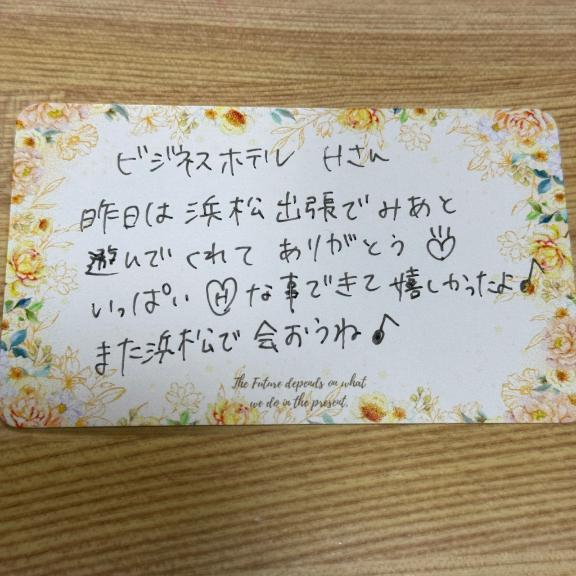 ビジネスホテル Hさん
昨日は浜松出張でみあと
遊んでくれて ありがとう♡
いっぱい Ⓗな事できて嬉しかったよ♪
また浜松で会おうね♪
The Future depends on what
we do in the present.